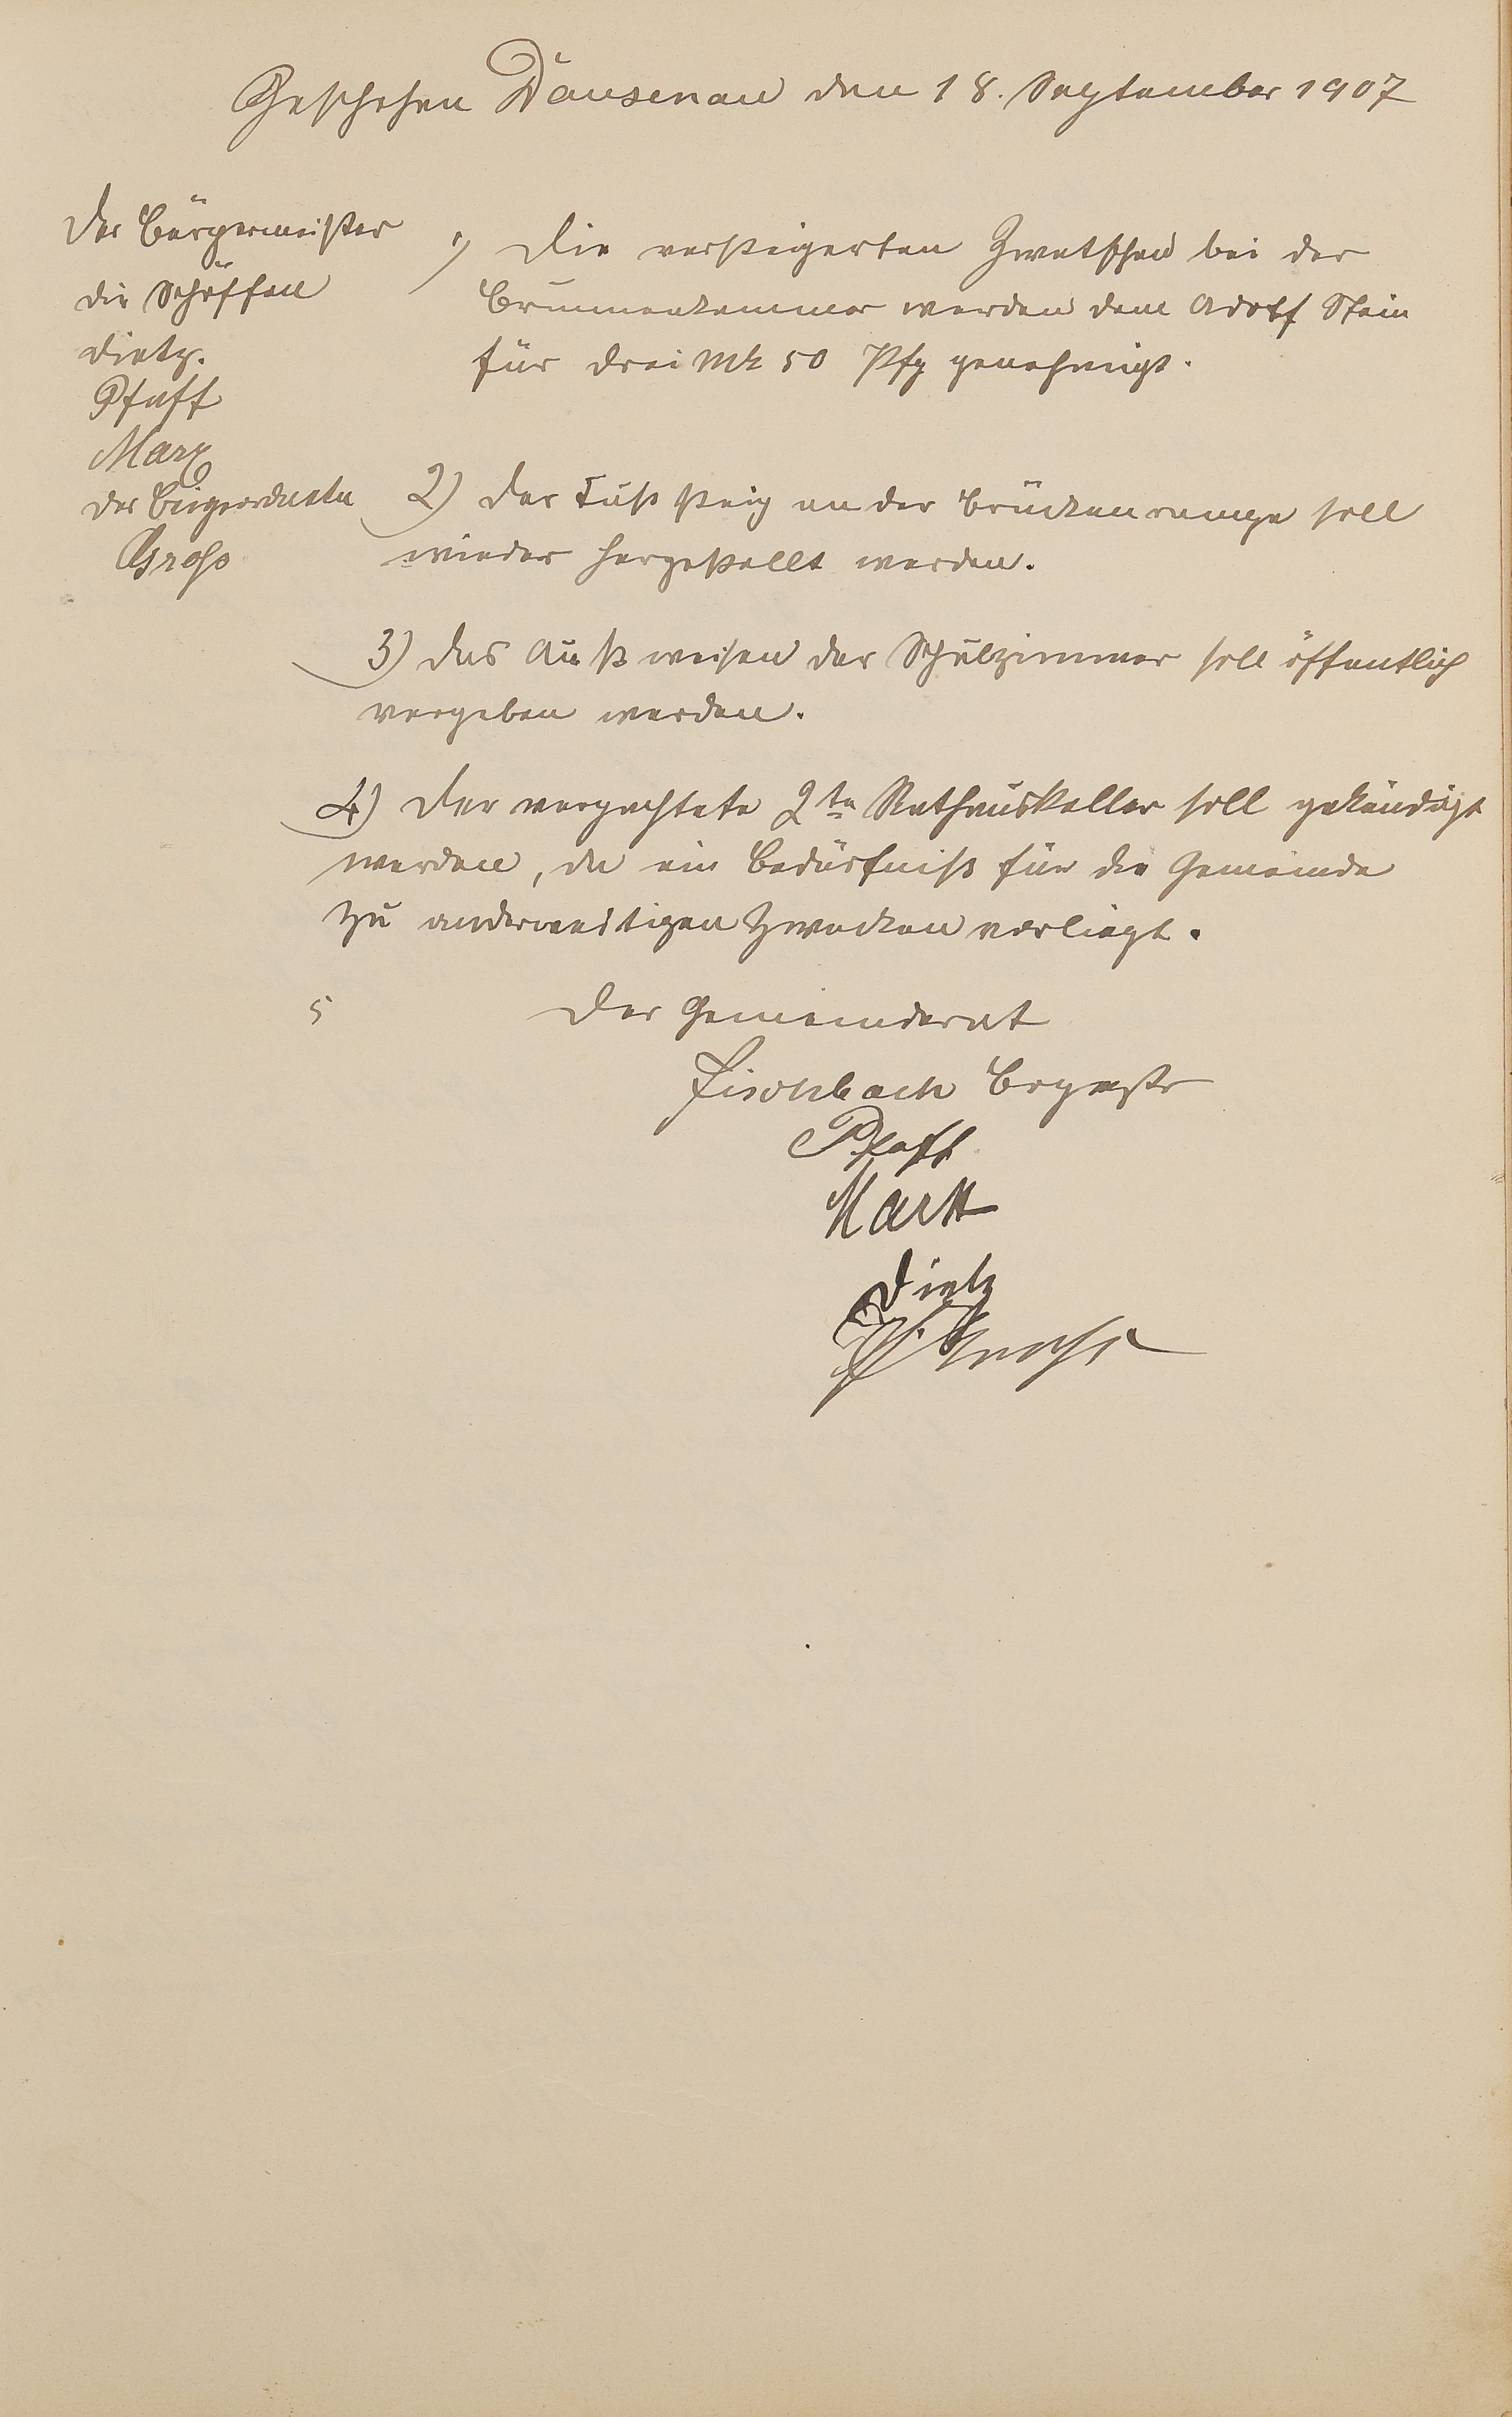 Geschehen Dausenau den 18. September 1907
Der Bürgermeister
die Schöffen
Dietz.
Pfaff
Marx
der Beigeordnete
Gross
1) Die versteigerten Zwetschen bei der
Brunnenkammer werden dem Adolf Stein
für drei Mk 50 Pfg genehmigt.
2) Der Fußsteig an der Brückenrampe soll
wieder hergestellt werden.
3) Das Außweisen der Schulzimmer soll öffentlich
vergeben werden.
4) Der verpachtete 2te Rathauskeller soll gekündigt
werden, da ein Bedürfniß für die Gemeinde
zu anderweitigen Zwecken vorliegt.
5
Der Gemeinderat
Fischbach Brgmstr
Pfaff
Marx
Dietz
Gross